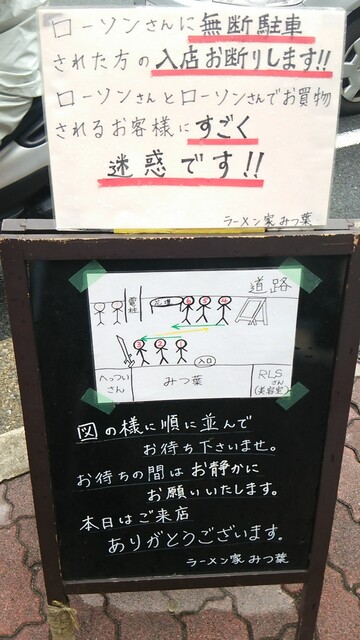 ローソンさんに無断駐車
された方の入店お断りします!!
ローソンさんとローソンさんでお買物
されるお客様にすごく
迷惑です!!
ラーメン家 みつ葉
道路
電柱
入口
へっついさん
みつ葉
RLSさん
(美容室)
図の様に順に並んで
お待ち下さいませ。
お待ちの間はお静かに
お願いいたします。
本日はご来店
ありがとうございます。
ラーメン家 みつ葉